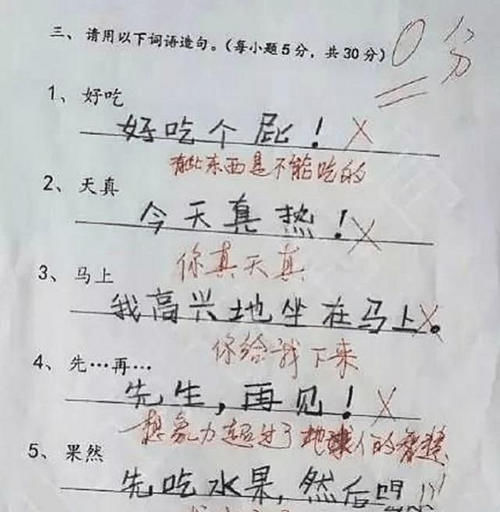 三、请用以下词语造句。(每小题5分，共30分) 0分
1、好吃
好吃个屁！
有些东西是不能吃的
2、天真
今天真热！
你真天真
3、马上
我高兴地坐在马上。
你给我下来
4、先…再…
先生，再见！
想象力超过了地球人的智慧
5、果然
先吃水果，然后吗!!!